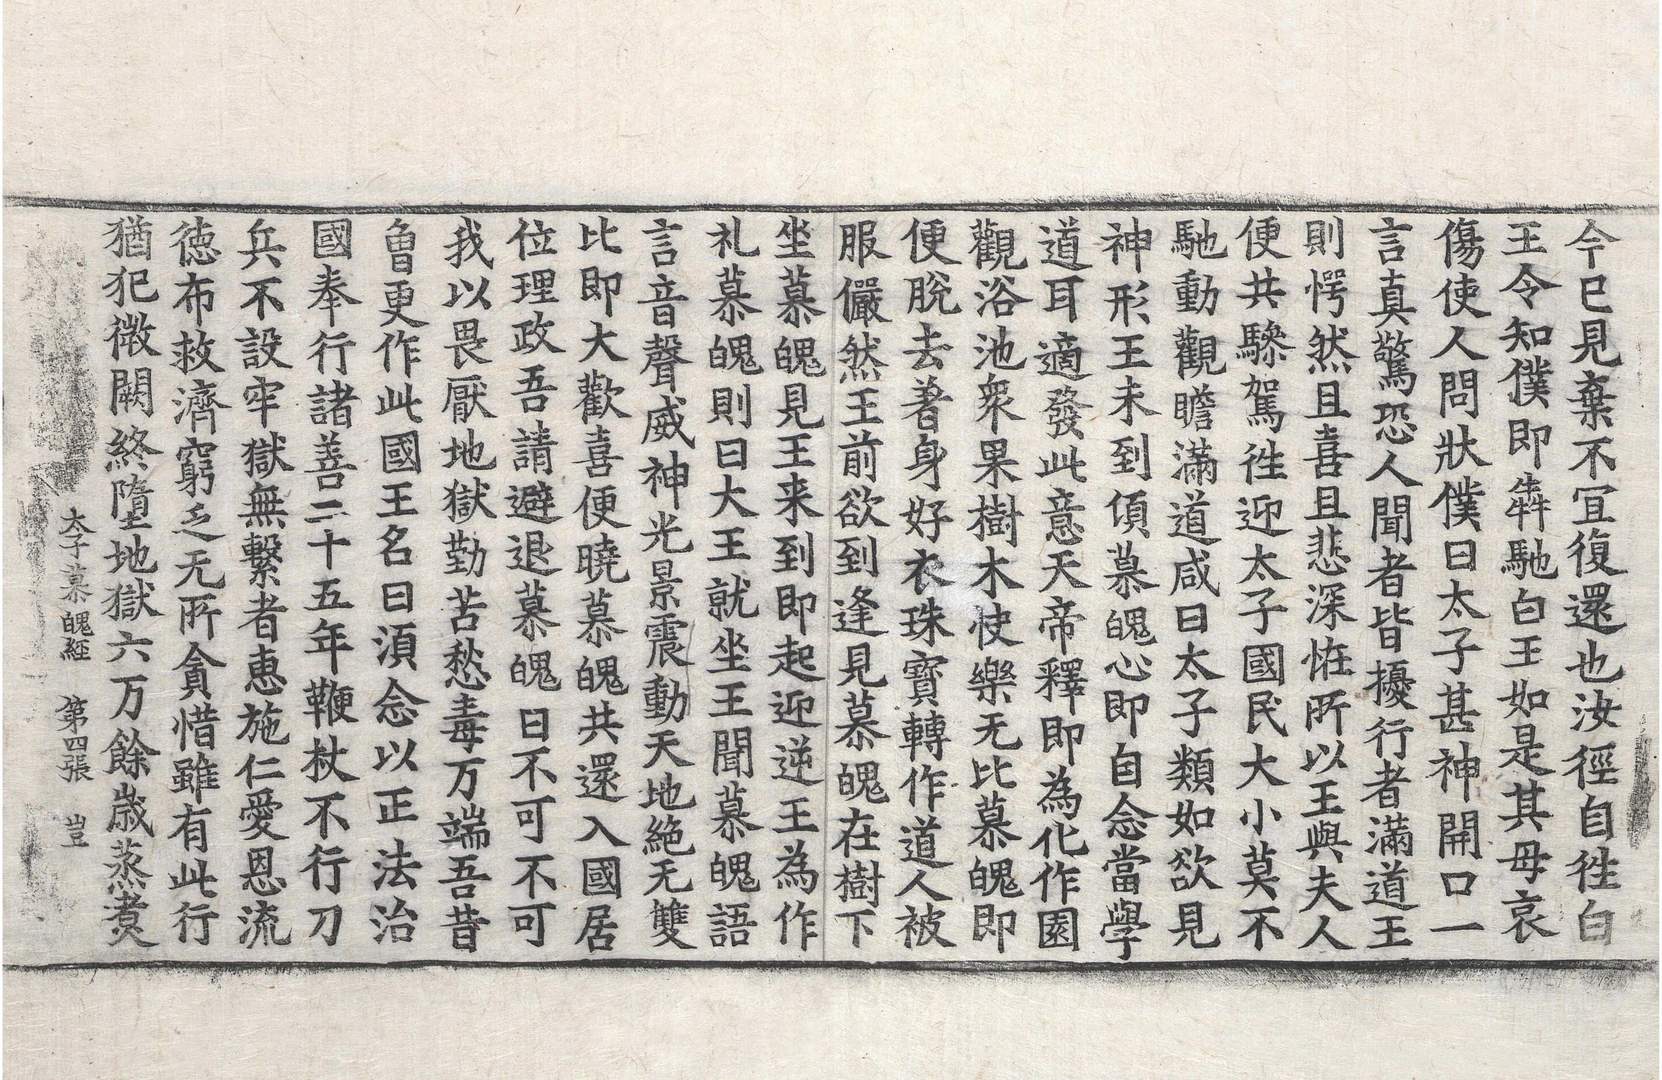 今已見棄不宜復還也汝徑自徃白
王令知僕即犇馳白王如是其母哀
傷使人問狀僕曰太子甚神開口一
言真驚恐人聞者皆擾行者滿道王
則愕然且喜且悲深恠所以王與夫人
便共驂駕徃迎太子國民大小莫不
馳動觀瞻滿道咸曰太子類如欲見
神形王未到頃慕魄心即自念當學
道耳適發此意天帝釋即為化作園
觀浴池衆果樹木快樂无比慕魄即
便脫去著身好衣珠寶轉作道人被
服儼然王前欲到逢見慕魄在樹下
坐慕魄見王来到即起迎逆王為作
礼慕魄則曰大王就坐王聞慕魄語
言音聲威神光景震動天地絶无雙
比即大歡喜便曉慕魄共還入國居
位理政吾請避退慕魄曰不可不可
我以畏厭地獄勤苦愁毒万端吾昔
曾更作此國王名曰湏念以正法治
國奉行諸善二十五年鞭杖不行刀
兵不設牢獄無繫者惠施仁愛恩流
徳布救濟窮乏无所貪惜雖有此行
猶犯微闕終墮地獄六万餘歳蒸煑
太子慕魄経 第四張 豈